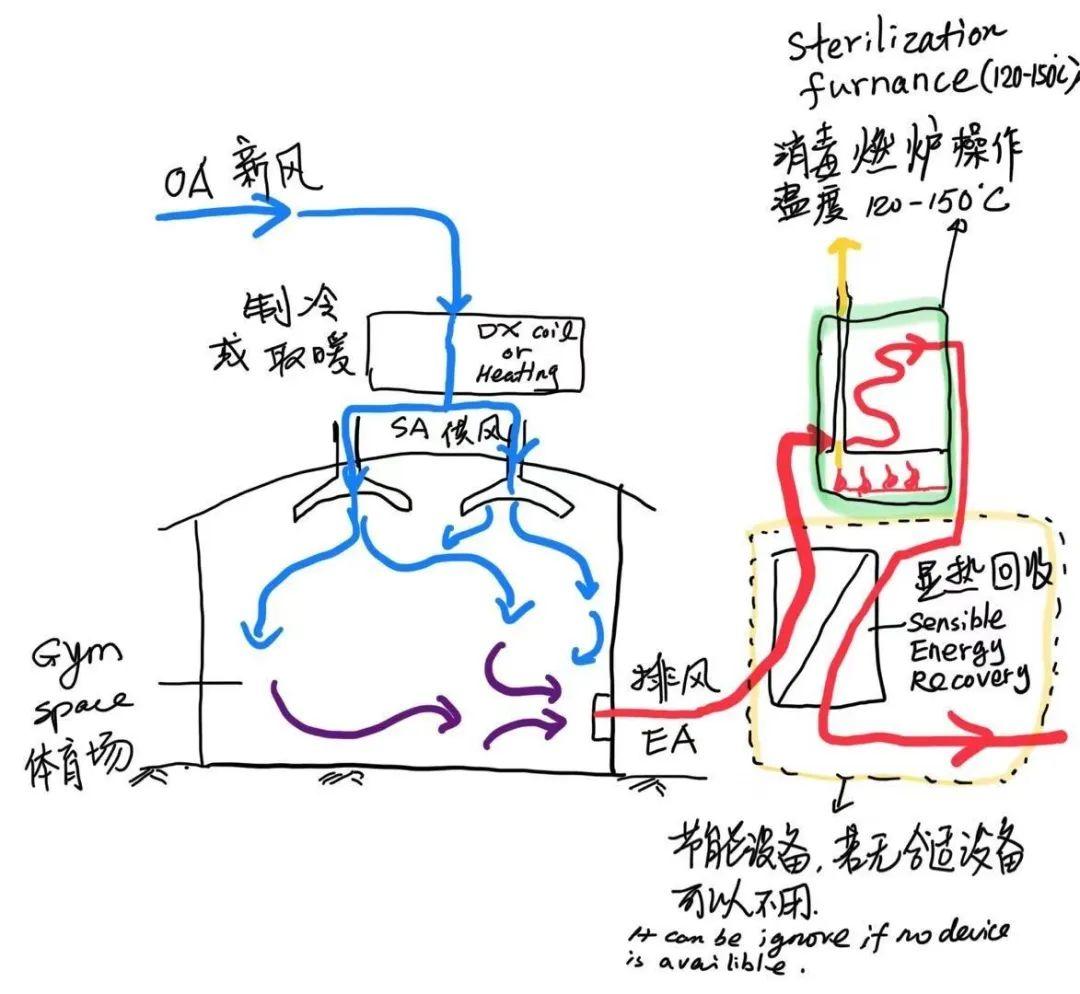 Sterilization
furnance(120-150℃)
消毒燃炉操作
温度 120-150℃
OA 新风
制冷
或取暖
DX coil
or
Heating
SA 供风
显热回收
Sensible
Energy
Recovery
Gym
space
体育场
排风
EA
节能设备,若无合适设备
可以不用.
It can be ignore if no device
is availible.